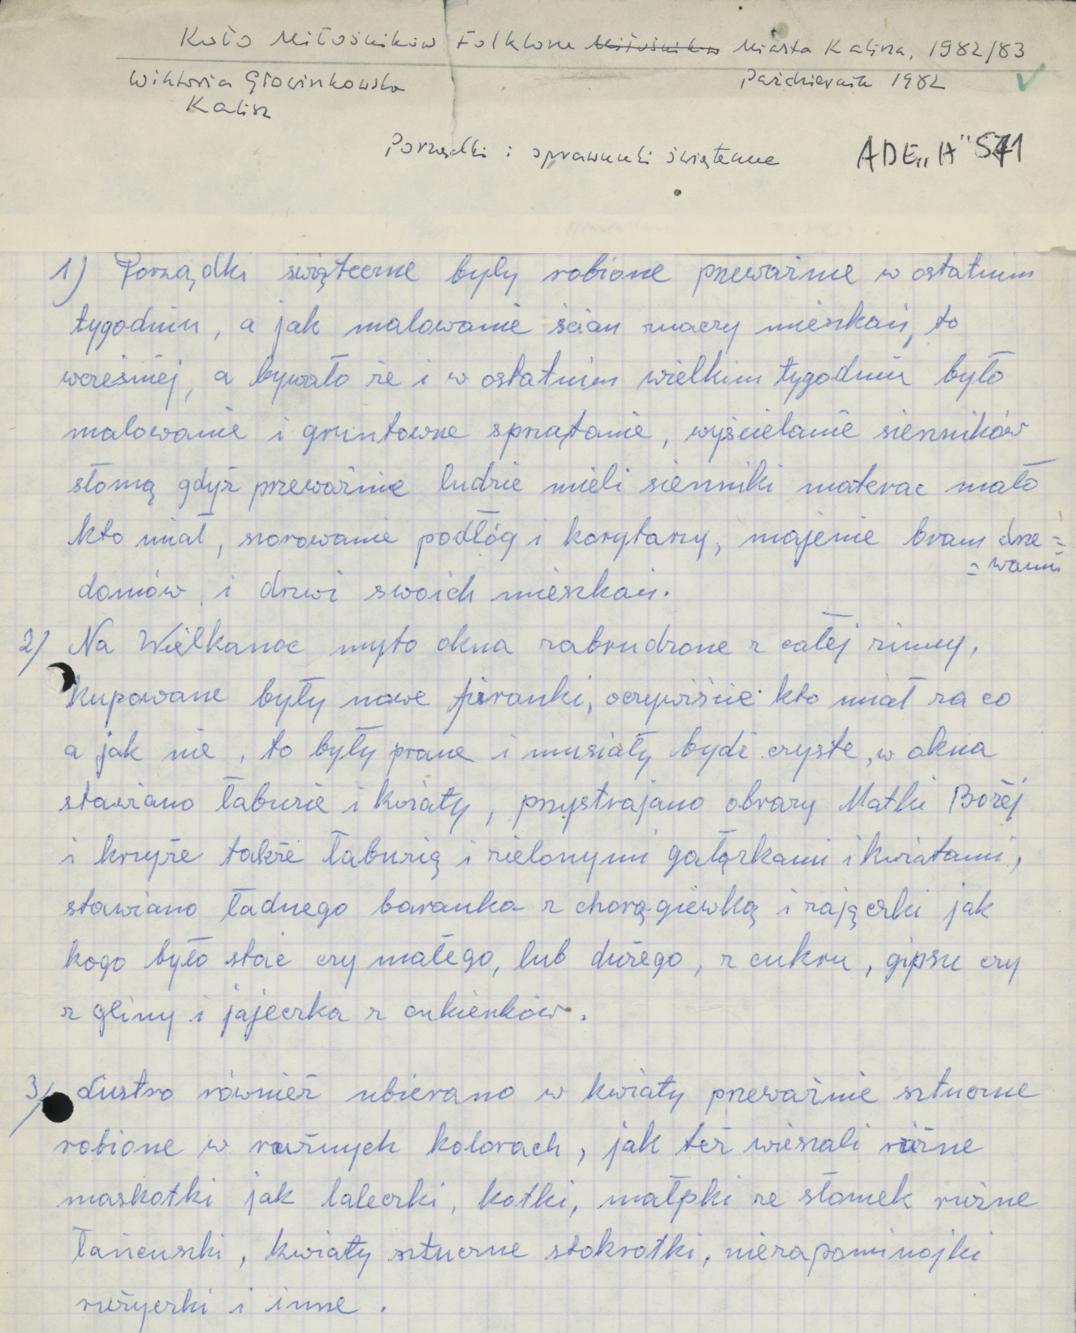 Koło Miłośników Folkloru Miłośników Miasta Kalisza, 1982/83
Wiktoria Głowinkowska
Październik 1982
Kalisz
Porządki i sprawunki świąteczne
ADE„H" 571
1) Porządki świąteczne były robione przeważnie w ostatnim
tygodniu, a jak malowanie ścian znaczy mieszkań, to
wcześniej, a bywało że i w ostatnim wielkim tygodniu było
malowanie i gruntowne sprzątanie, wyścielanie sienników
słomą gdyż przeważnie ludzie mieli sienniki materac mało
kto miał, szorowanie podłóg i korytarzy, majenie bram drze=
=wami
domów i drzwi swoich mieszkań.
2) Na Wielkanoc myto okna zabrudzone z całej zimy,
kupowane były nowe firanki, oczywiście kto miał za co
a jak nie, to były prane i musiały bydź czyste, w okna
stawiano łabuzie i kwiaty, przystrajano obrazy Matki Bożej
i krzyże także łabuzią i zielonymi gałązkami i kwiatami,
stawiano ładnego baranka z chorągiewką i zajączki jak
kogo było stać czy małego, lub dużego, z cukru, gipsu czy
z gliny i jajeczka z cukierków.
3) Lustro również ubierano w kwiaty przeważnie sztuczne
robione w różnych kolorach, jak też wieszali różne
maskotki jak laleczki, kotki, małpki ze słomek różne
łańcuszki, kwiaty sztuczne stokrotki, niezapominajki
różyczki i inne.